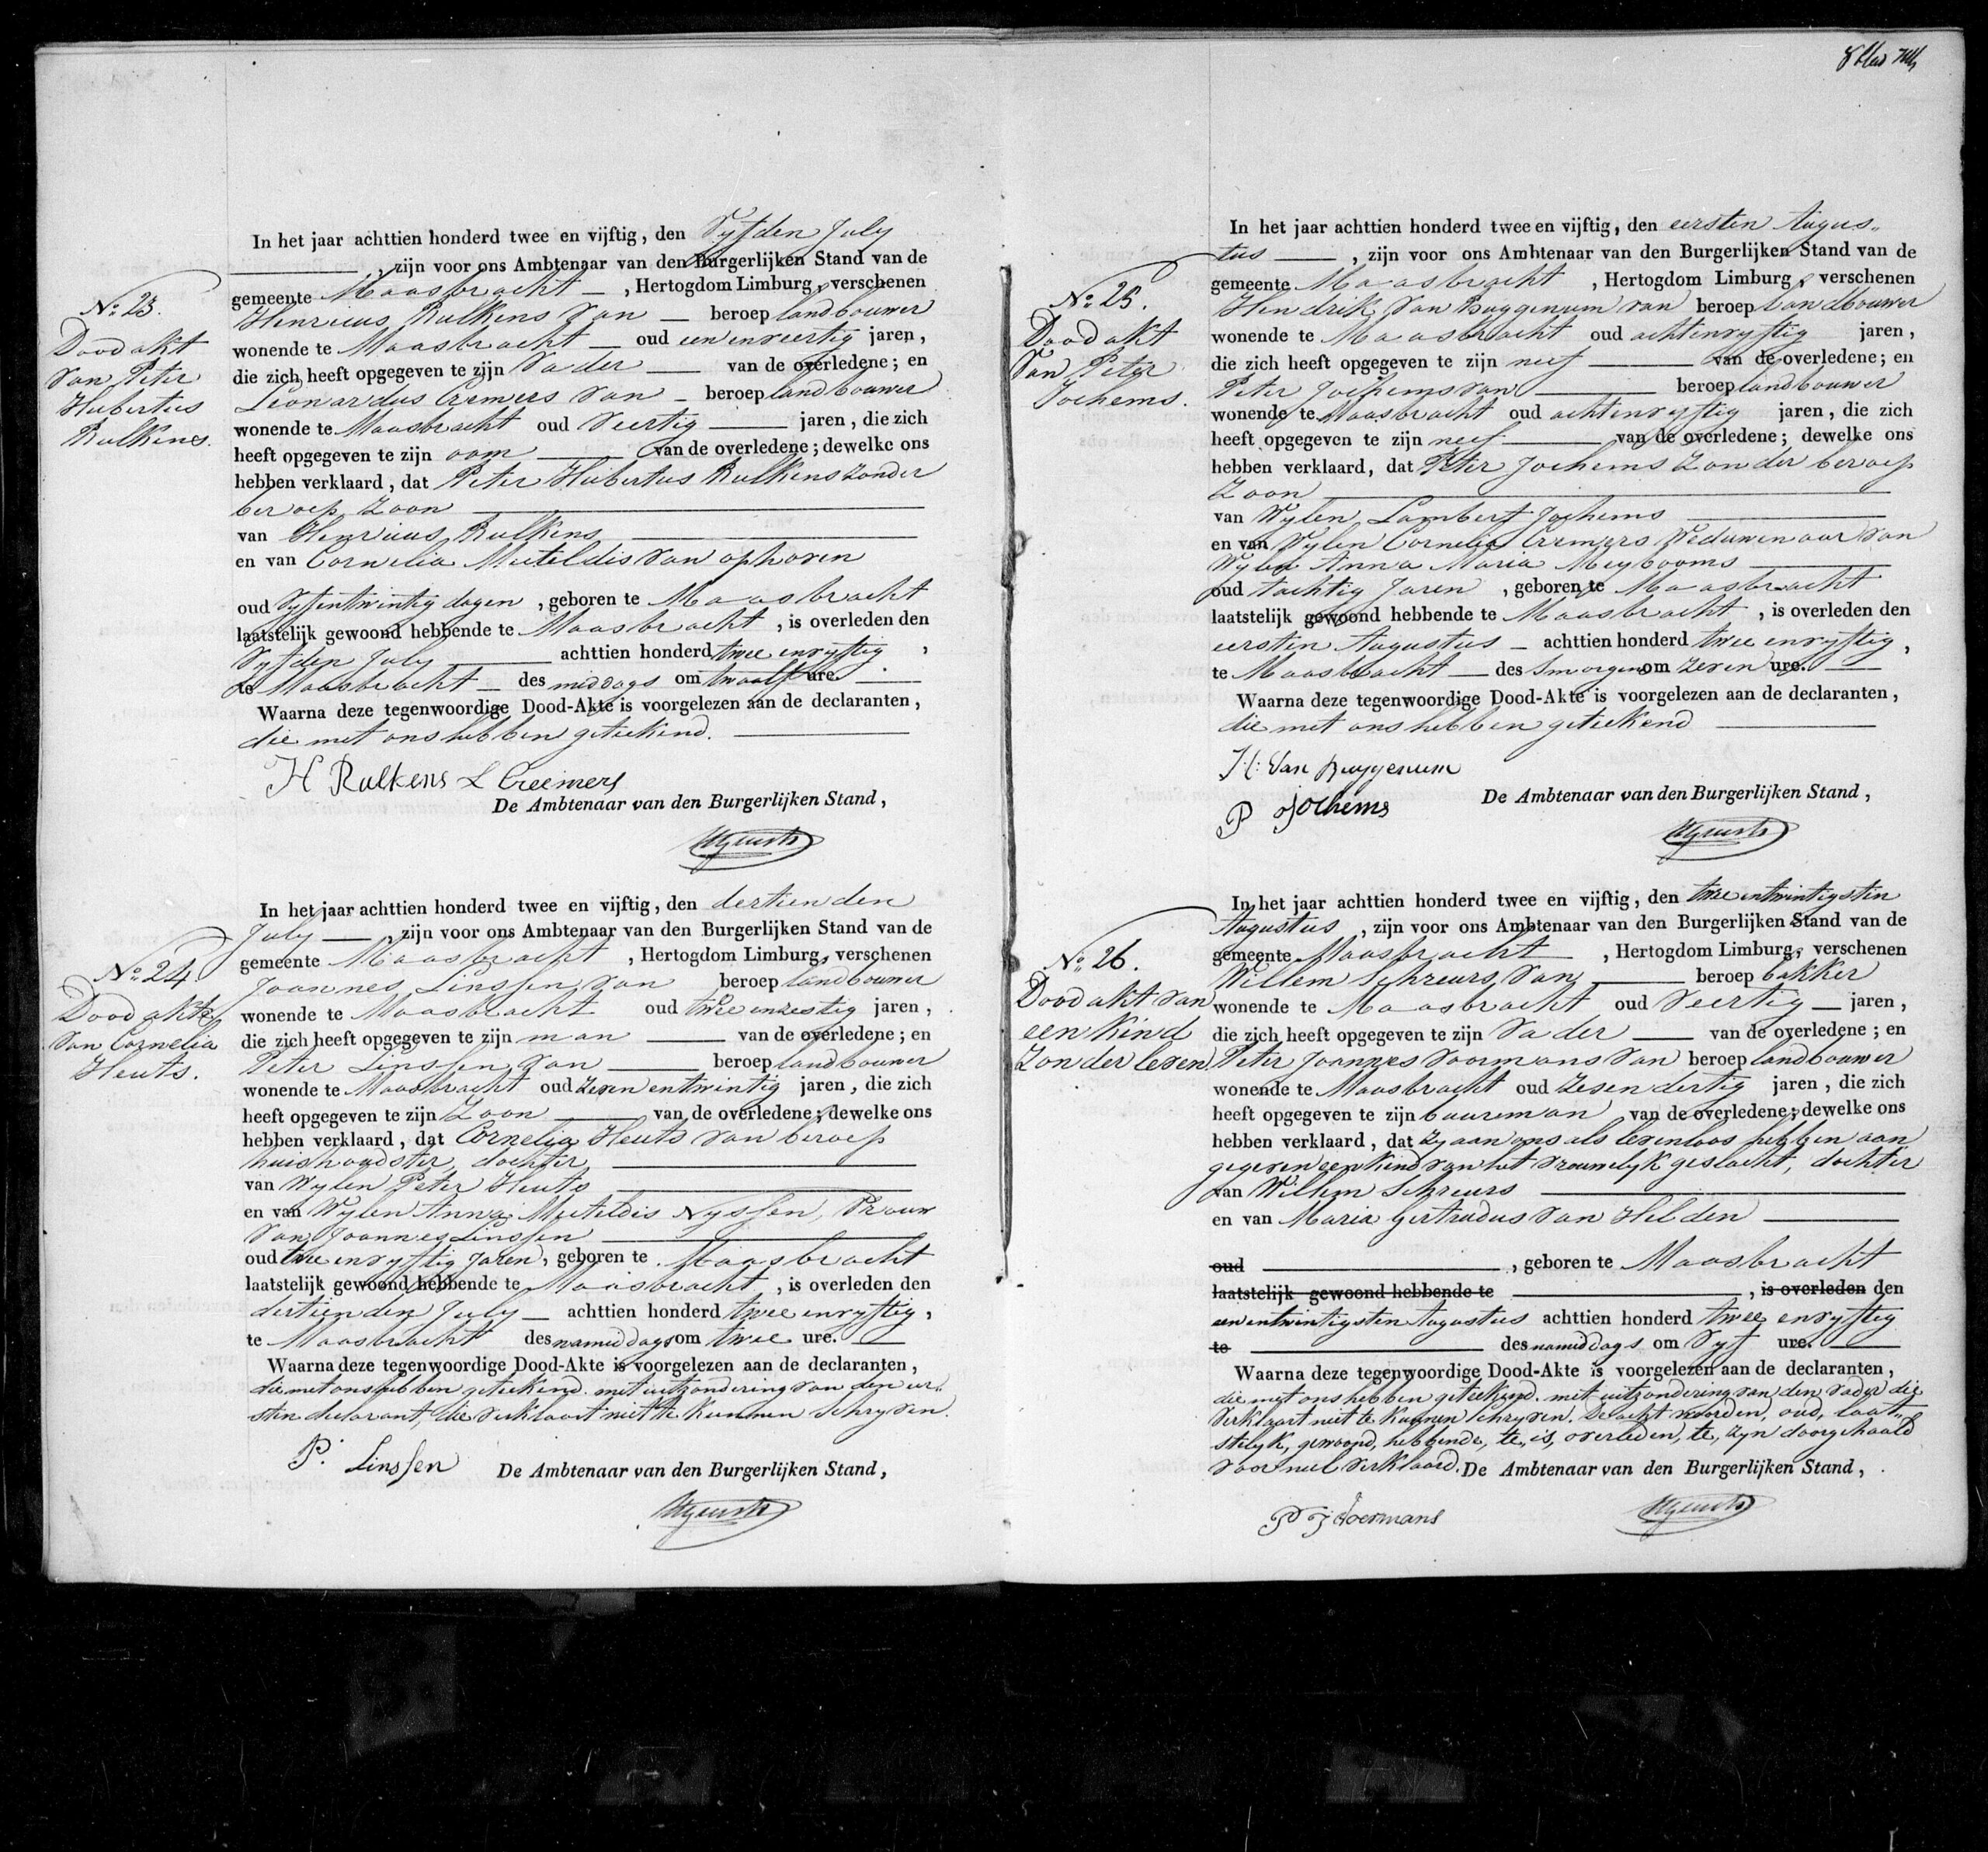 In het jaar achttien honderd twee en vijftig, den Vyfden July
, zijn voor ons Ambtenaar van den Burgerlijken Stand van de
gemeente Maasbracht , Hertogdom Limburg, verschenen
Henricus Rulkens van beroep landbouwer
wonende te Maasbracht oud een en veertig jaren,
die zich heeft opgegeven te zijn Vader van de overledene; en
Leonardus Cremers van beroep landbouwer
wonende te Maasbracht oud Veertig jaren, die zich
heeft opgegeven te zijn oom van de overledene; dewelke ons
hebben verklaard, dat Peter Hubertus Rulkens zonder
beroep, Zoon
van Henricus Rulkens
en van Cornelia Meteldis van ophoven
oud Vyfentwintig dagen , geboren te Maasbracht
laatstelijk gewoond hebbende te Maasbracht , is overleden den
Vyfden July achttien honderd twee envyftig ,
te Maasbracht des middags om twaalf ure.
Waarna deze tegenwoordige Dood-Akte is voorgelezen aan de declaranten,
die met ons hebben geteekend.
H Rulkens L Creemers
De Ambtenaar van den Burgerlijken Stand,
No: 23.
Dood akt
van Peter
Hubertus
Rulkens.
In het jaar achttien honderd twee en vijftig, den dertienden
July , zijn voor ons Ambtenaar van den Burgerlijken Stand van de
gemeente Maasbracht , Hertogdom Limburg, verschenen
Joannes Linssen van beroep landbouwer
wonende te Maasbracht oud twee enzestig jaren,
die zich heeft opgegeven te zijn man van de overledene; en
Peter Linssen van beroep landbouwer
wonende te Maasbracht oud zeven entwintig jaren, die zich
heeft opgegeven te zijn Zoon van de overledene; dewelke ons
hebben verklaard, dat Cornelia Heuts van beroep
huishoudster, dochter
van Wylen Peter Heuts
en van Wylen Anna Meteldis Nyssen, Vrouw
van Joannes Linssen
oud twee envyftig Jaren, geboren te Maasbracht
laatstelijk gewoond hebbende te Maasbracht , is overleden den
dertienden July achttien honderd twee envyftig,
te Maasbracht des namiddags om twee ure.
Waarna deze tegenwoordige Dood-Akte is voorgelezen aan de declaranten,
die met ons hebben geteekend. met uitzondering van den eer„
sten declarant, die verklaart niet te kunnen schryven.
P. Linssen De Ambtenaar van den Burgerlijken Stand,
No: 24
Dood akte
van Cornelia
Heuts.
In het jaar achttien honderd twee en vijftig, den eersten Augus„
tus , zijn voor ons Ambtenaar van den Burgerlijken Stand van de
gemeente Maasbracht , Hertogdom Limburg, verschenen
Hendrik van Buggenum van beroep landbouwer
wonende te Maasbracht oud achtenvyftig jaren,
die zich heeft opgegeven te zijn neef van de overledene; en
Peter Jochems van beroep landbouwer
wonende te Maasbracht oud achtenvyftig jaren, die zich
heeft opgegeven te zijn neef van de overledene; dewelke ons
hebben verklaard, dat Peter Jochems Zonder beroep
Zoon
van Wylen Lambert Jochems
en van Wylen Cornelia Cremers Weduwenaar van
Wylen Anna Maria Meybooms
oud tachtig Jaren , geboren te Maasbracht
laatstelijk gewoond hebbende te Maasbracht , is overleden den
eersten Augustus achttien honderd twee envyftig,
te Maasbracht des Smorgens om zeven ure.
Waarna deze tegenwoordige Dood-Akte is voorgelezen aan de declaranten,
die met ons hebben geteekend
H: Van Buggenum
P Jochems De Ambtenaar van den Burgerlijken Stand,
No: 25.
Dood akt
Van Peter
Jochems.
In het jaar achttien honderd twee en vijftig, den twee entwintigsten
Augustus , zijn voor ons Ambtenaar van den Burgerlijken Stand van de
gemeente Maasbracht , Hertogdom Limburg, verschenen
Willem Schreurs van beroep bakker
wonende te Maasbracht oud Veertig jaren,
die zich heeft opgegeven te zijn Vader van de overledene; en
Peter Joannes Voormans van beroep landbouwer
wonende te Maasbracht oud zesendertig jaren, die zich
heeft opgegeven te zijn buurman van de overledene; dewelke ons
hebben verklaard, dat zy aan ons als levenloos hebben aan
gegeven een kind van het vrouwelyk geslacht, dochter
van Willem Schreurs
en van Maria Gertrudus van Helden
oud , geboren te Maasbracht
laatstelijk gewoond hebbende te , is overleden den
eenentwintigsten Augustus achttien honderd twee envyftig
te des namiddags om Vyf ure.
Waarna deze tegenwoordige Dood-Akte is voorgelezen aan de declaranten,
die met ons hebben geteekend. met uitzondering van den vader die
verklaart niet te kunnen schryven. De acht woorden, oud, laat„
stelyk, gewoond, hebbende, te, is, overleden, te, zyn doorgehaald
voor nul verklaard. De Ambtenaar van den Burgerlijken Stand,
No: 26.
Dood akt van
een Kind
Zonder leven